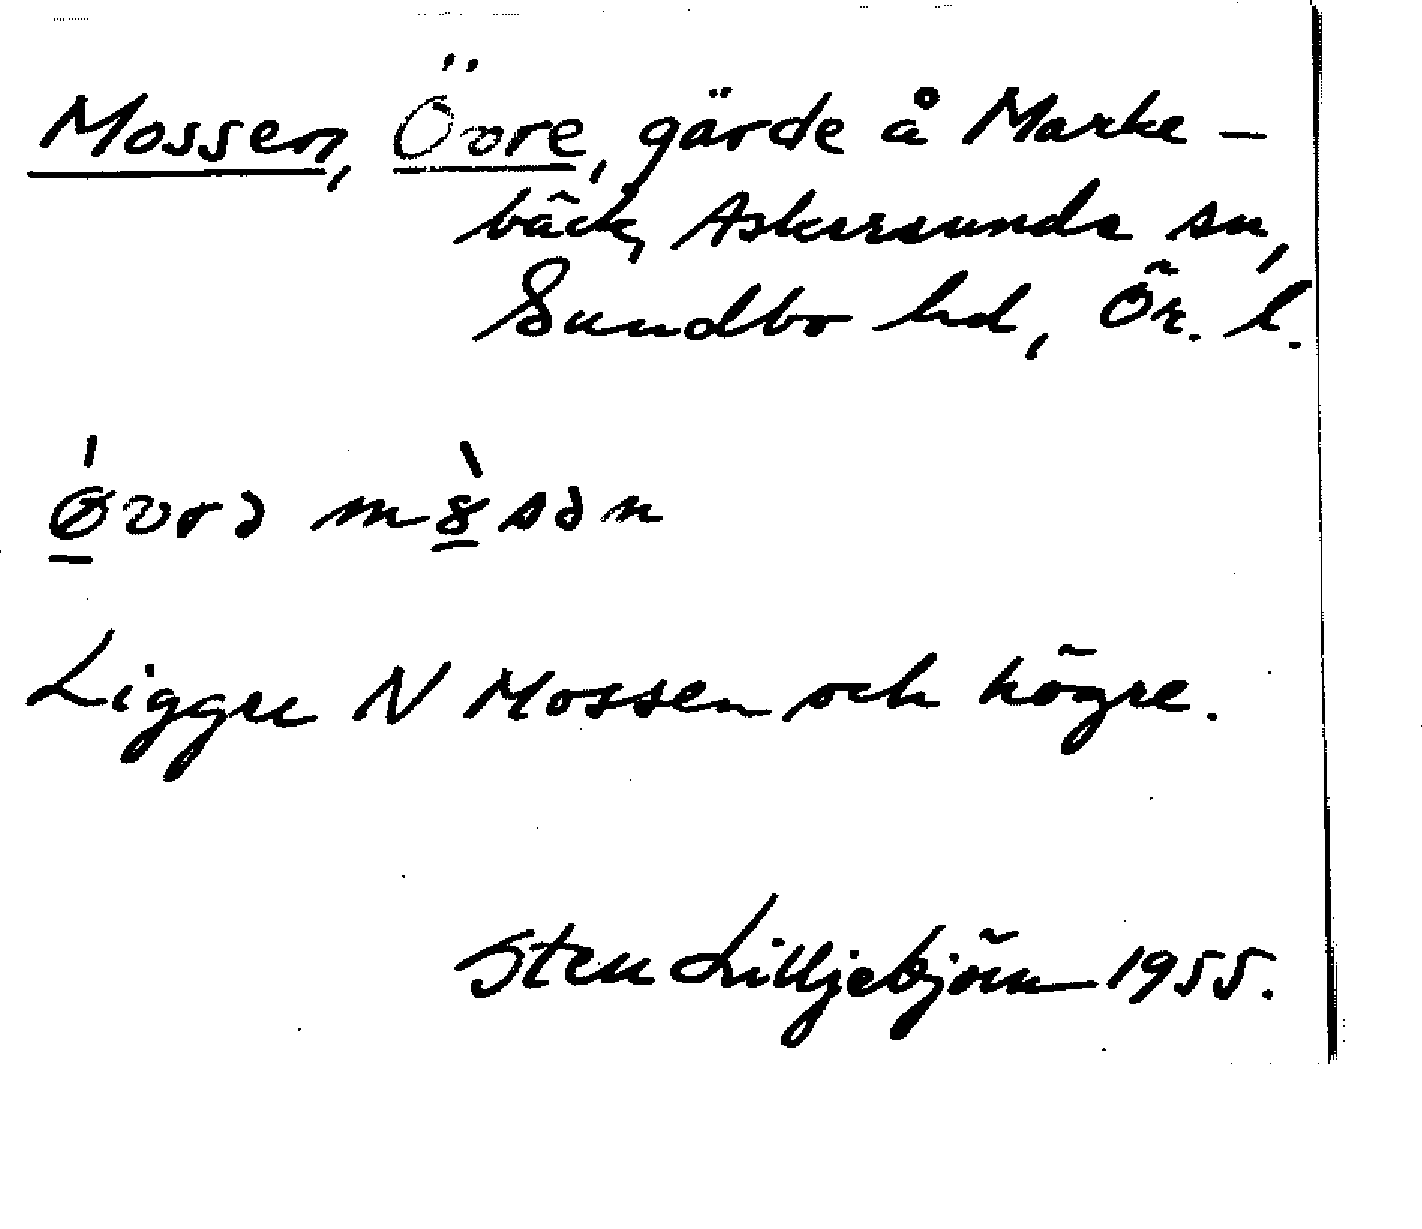 Mossen, Övre, gärde å Marke-
bäck, Askersunds sn,
Sundbo hd, Ör. l.
ǿ̱vrə mȣ̱̀sən
Ligger N Mossen och högre.
Sten Lilljebjörn 1955.